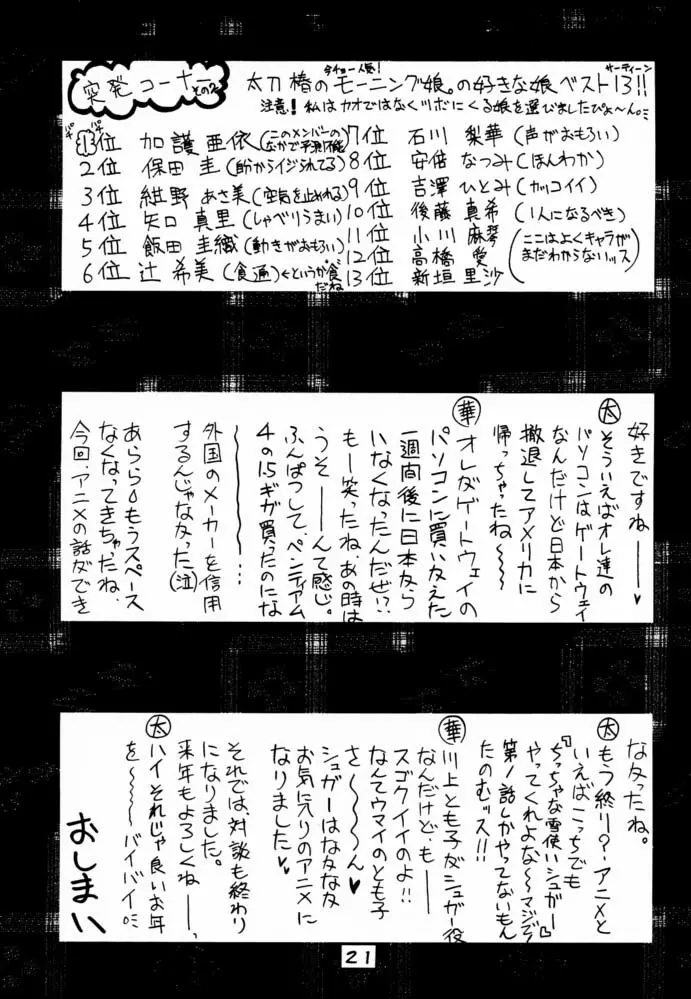 突発コーナー その2
今チョー人気!
サーティーン
太刀椿のモーニング娘。の好きな娘ベスト13!!
注意!私はカオではなくツボにくる娘を選びましたぴょ〜ん。
1位 加護亜依(このメンバーのなかで予測不能)
2位 保田 圭(助からイジられてる)
3位 紺野 あさ美(空気を止めれる)
4位 矢口 真里(しゃべりうまい)
5位 飯田 圭織(動きがおもろい)
6位 辻 希美(食遍)←というか食だね
7位 石川 梨華(声がおもろい)
8位 安倍 なつみ(ほんわか)
9位 吉澤 ひとみ(カッコイイ)
10位 後藤 真希(1人になるべき)
11位 小川 麻琴
12位 高橋 愛
13位 新垣 里沙
(ここはよくキャラがまだわからないッス)
好きですね――♥
太 そういえばオレ達の
パソコンはゲートウェイ
なんだけど日本から
撤退してアメリカに
帰っちゃったね〜〜
華 オレがゲートウェイの
パソコンに買い換えた
一週間後に日本から
いなくなったんだぜ!?
もー笑ったね、あの時は
うそ――んて感じ。
ふんぱつして、ペンティアム
4の1.5ギガ買ったのにな
〜〜〜〜〜…
外国のメーカーを信用
するんじゃなかった(泣)
あららもうスペース
なくなってきちゃたね、
今回、アニメの話ができ
なかったね。
太 もう終り?アニメと
いえばこっちでも
『ちっちゃな雪使いシュガー』
やってくれよな〜〜マジで
第1話しかやってないもん
たのむッス!!
華 川上とも子がシュガー役
なんだけども――
スゴクイイのよ!!
なんてウマイのとも子
さ〜〜〜ん♥
シュガーはなかなか
お気に入りのアニメに
なりました♥♥
それでは、対談も終わり
になりました。
来年もよろしくね――、
太 ハイそれじゃ良いお年
を〜〜〜バイバイ
おしまい
21